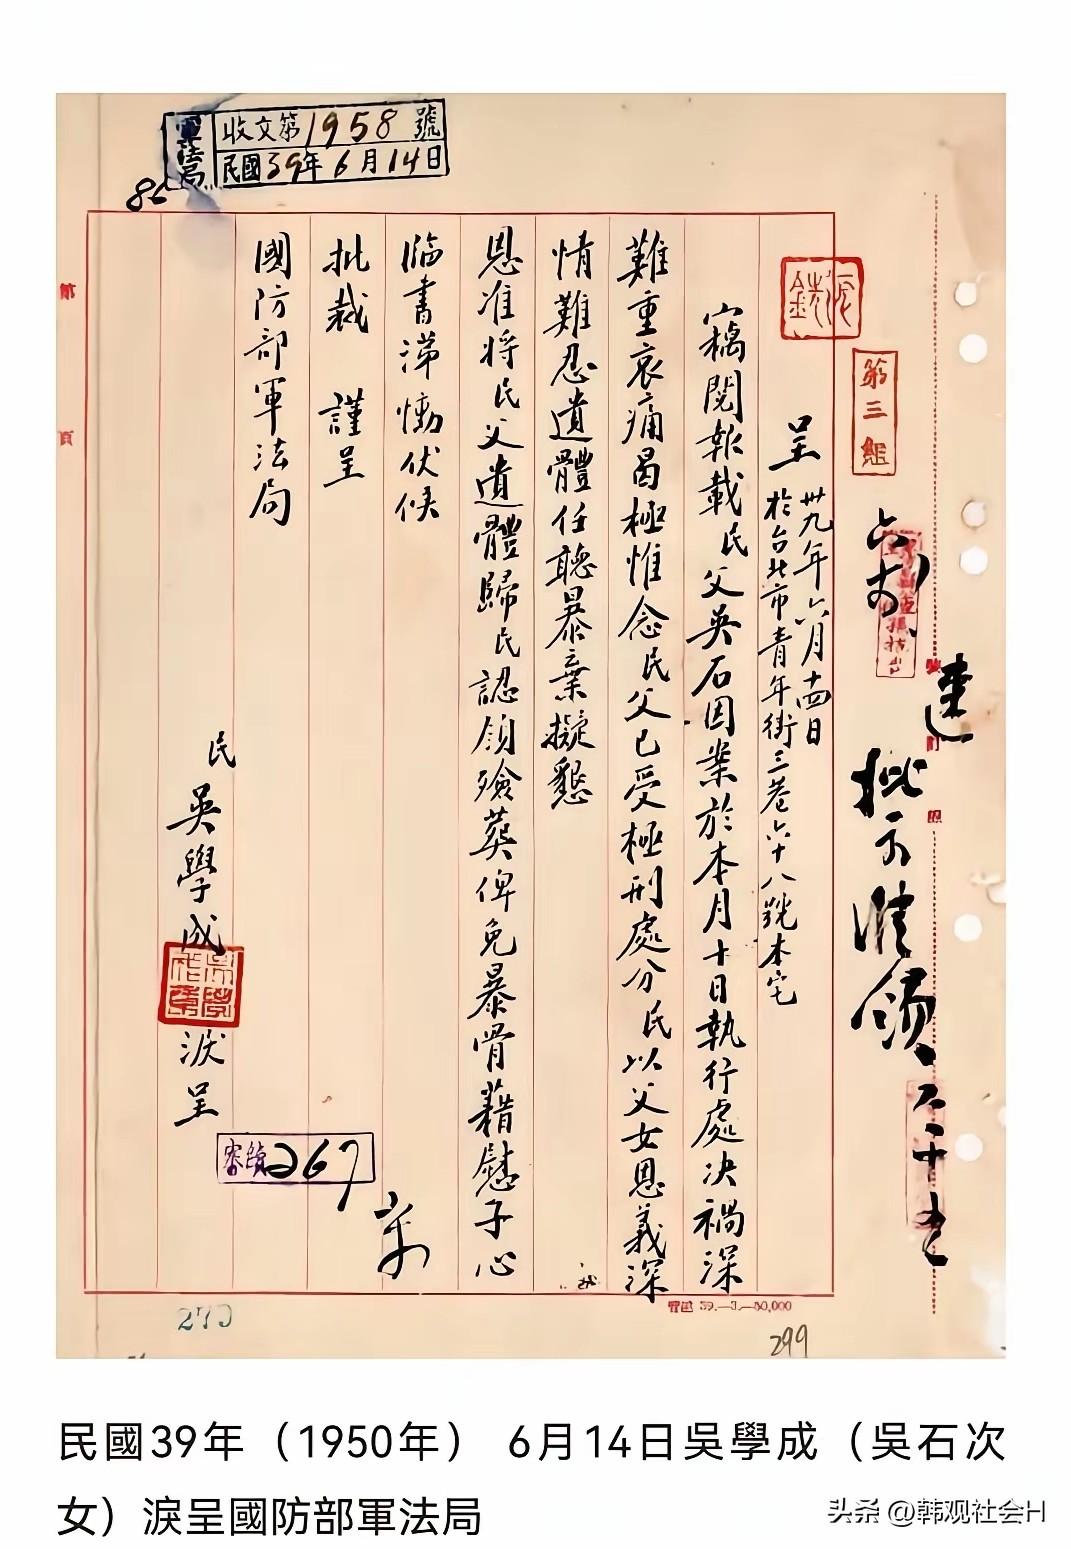 軍法局
收文第1958號
民國39年6月14日
第三組
呈
卅九年六月十四日
於台北市青年街三巷六十八號本宅
竊閱報載民父吳石因案於本月十日執行處決禍深
難重哀痛曷極惟念民父已受極刑處分民以父女恩義深
情難忍遺體任聽暴棄擬懇
恩准將民父遺體歸民認領殮葬俾免暴骨藉慰子心
臨書涕慟伏候
批裁 謹呈
國防部軍法局
民 吳學成 淚呈
批示准領
第
頁
267
270
299
民國39年（1950年） 6月14日吳學成（吳石次
女）淚呈國防部軍法局
头条 @韩观社会H